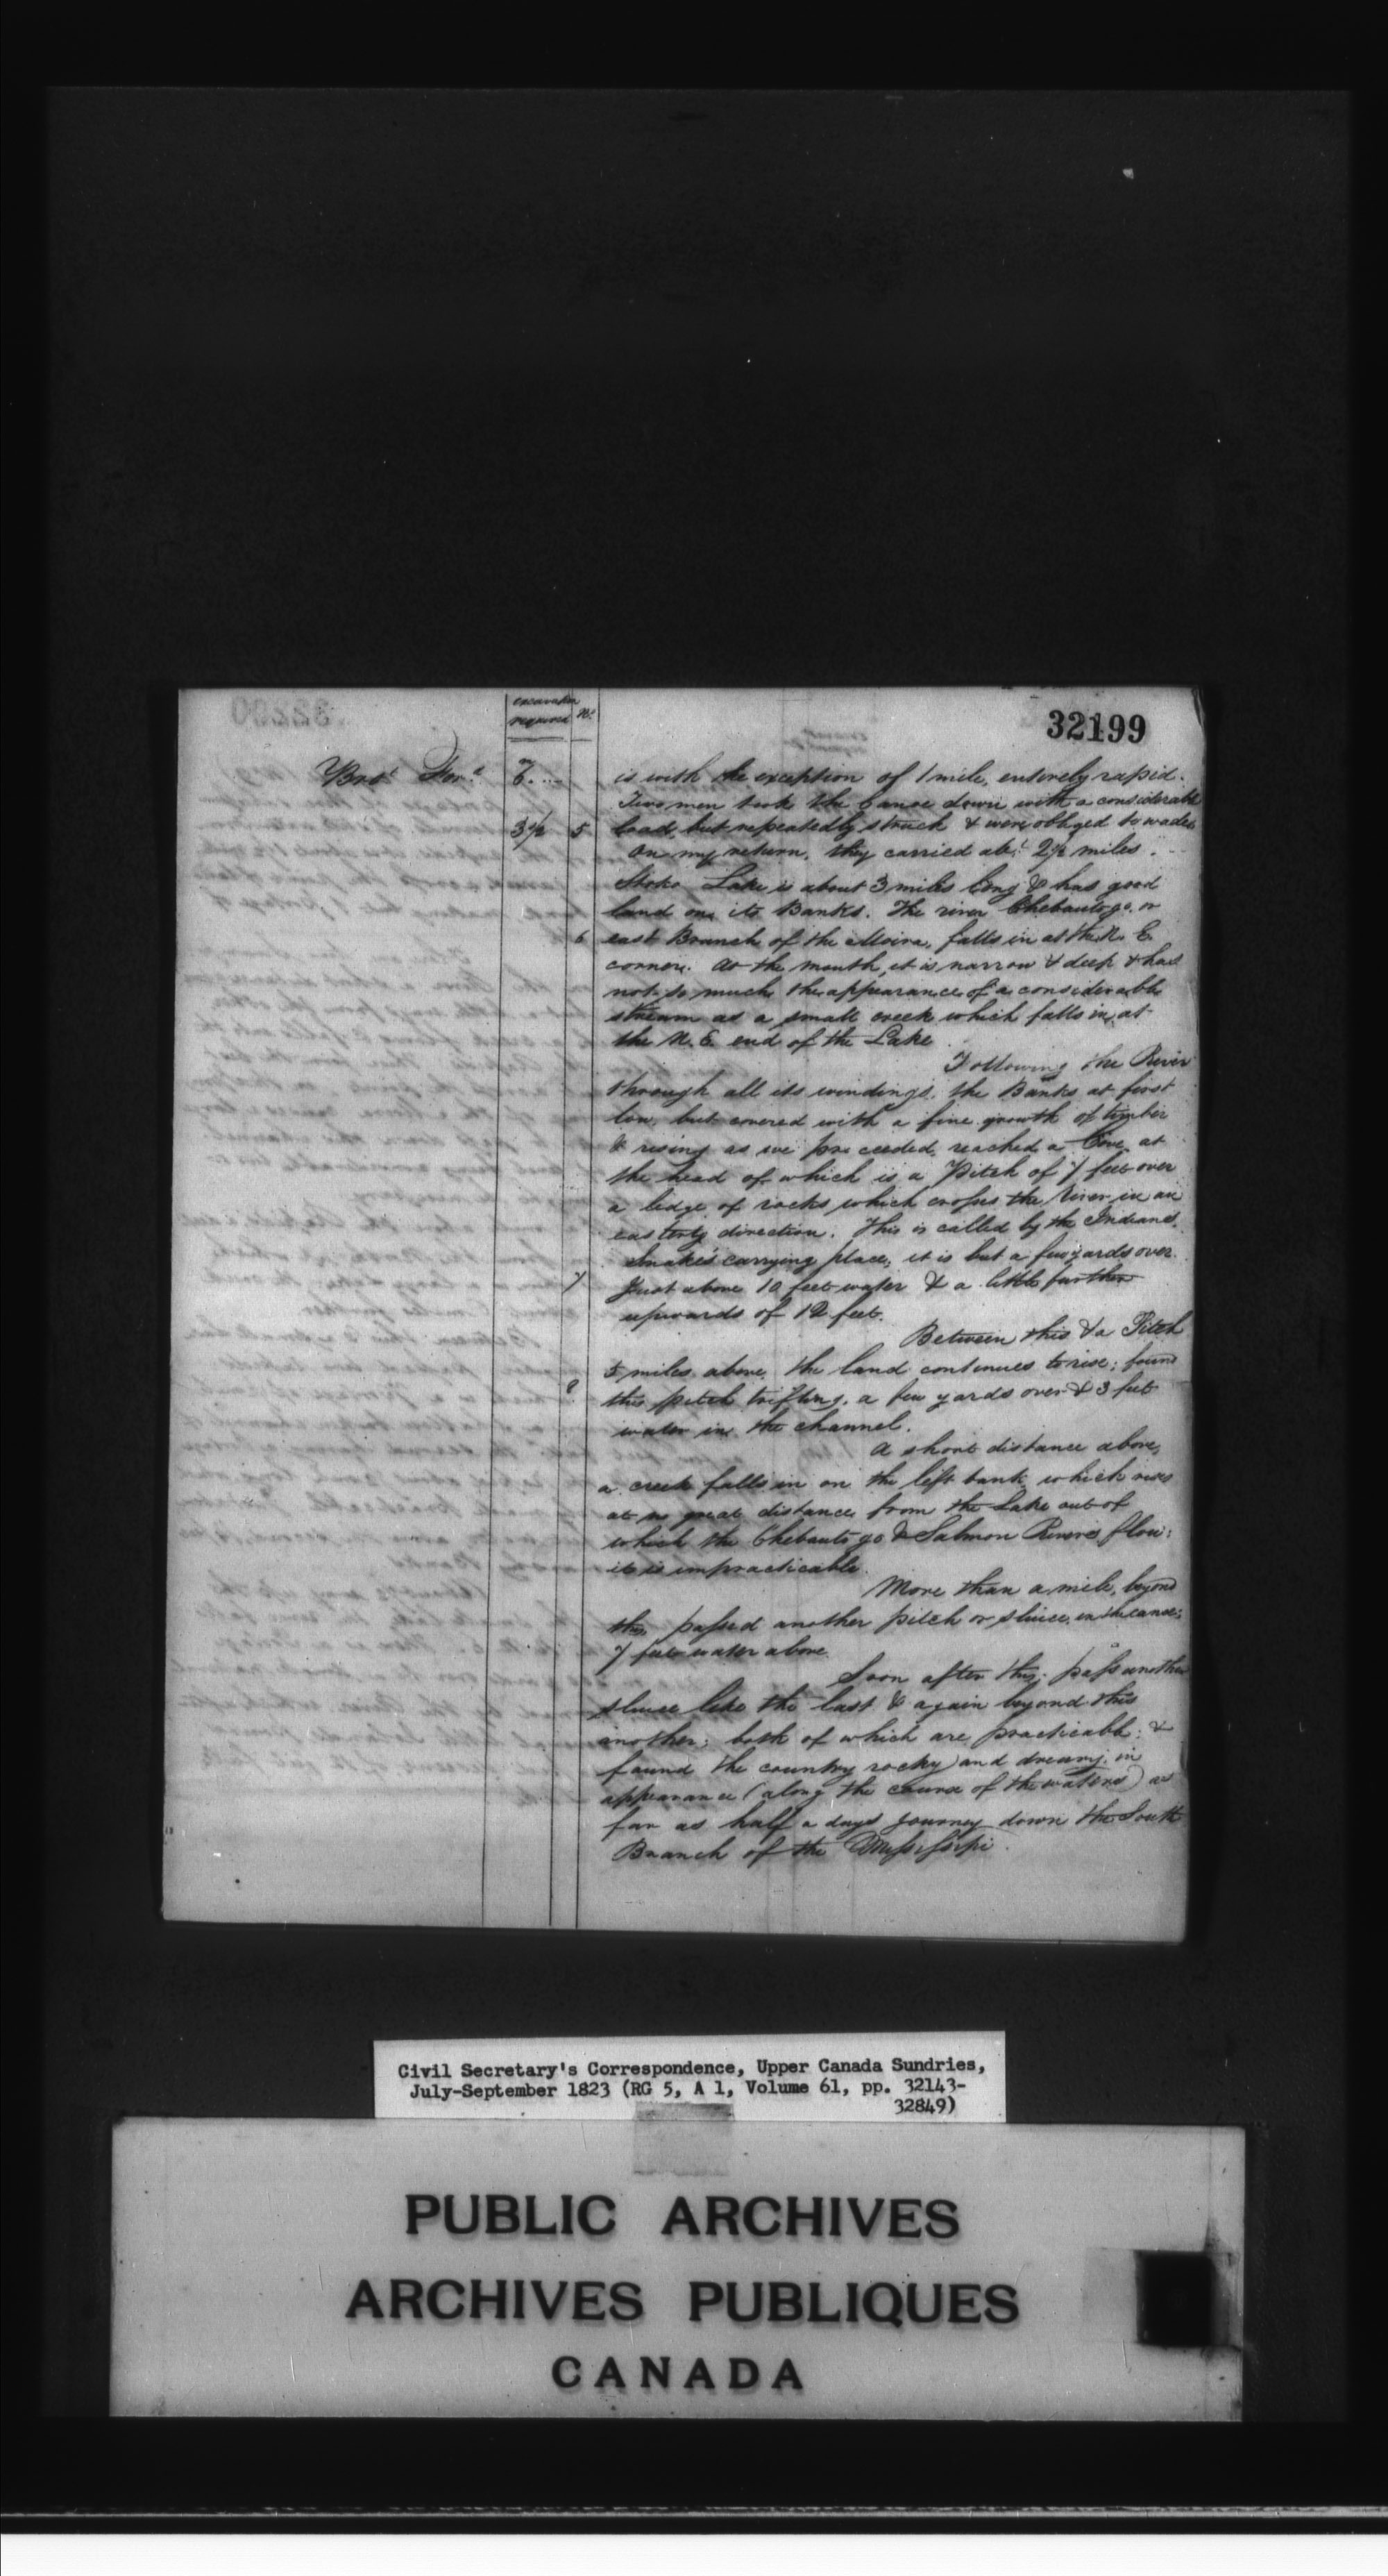 excavation required No.
32199
Brot. Ford. 6 m....
is with the exception of 1 mile, entirely rapid.
Two men took the Canoe down with a considerable
3½ 5 load, but repeatedly struck & were obliged to wade
on my return, they carried abt. 2½ miles.
Stoko Lake is about 3 miles long & has good
land on its Banks. The river Chebautogo, or
6 east Branch of the Moira, falls in at the N. E.
corner. At the mouth, it is narrow & deep & has
not so much the appearance of a considerable
stream as a small creek which falls in at
the N. E end of the Lake
Following the River
through all its windings, the Banks at first
low, but covered with a fine growth of timber
& rising as we proceeded, reached a Cove, at
the head of which is a Pitch of 7 feet over
a ledge of rocks which crosses the River in an
easterly direction. This is called by the Indians,
Snake's carrying place, it is but a few yards over.
7 Just above 10 feet water & a little further
upwards of 12 feet.
Between this & a Pitch
5 miles above, the land continues to rise; found
8 this pitch trifling, a few yards over & 3 feet
water in the channel.
A short distance above,
a creek falls in on the left bank, which rises
at no great distance from the Lake out of
which the Chebautogo & Salmon Rivers flow:
it is impracticable.
More than a mile, beyond
this, passed another pitch or sluice, in the canoe;
7 feet water above.
Soon after this, pass another
sluice like the last & again beyond this
another; both of which are practicable; &
found the country rocky and dreary in
appearance (along the course of the waters) as
far as half a days journey down the South
Branch of the Mississipi.
Civil Secretary's Correspondence, Upper Canada Sundries,
July-September 1823 (RG 5, A 1, Volume 61, pp. 32143-
32849)
PUBLIC ARCHIVES
ARCHIVES PUBLIQUES
CANADA